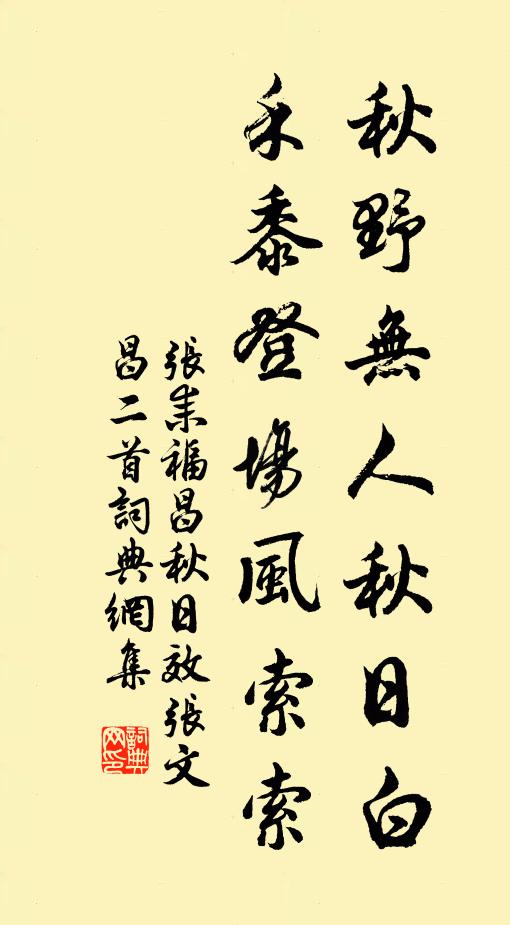 秋野無人秋日白
禾黍登場風索索
張耒福昌秋日效張文
昌二首詞典網集
詞典
网印